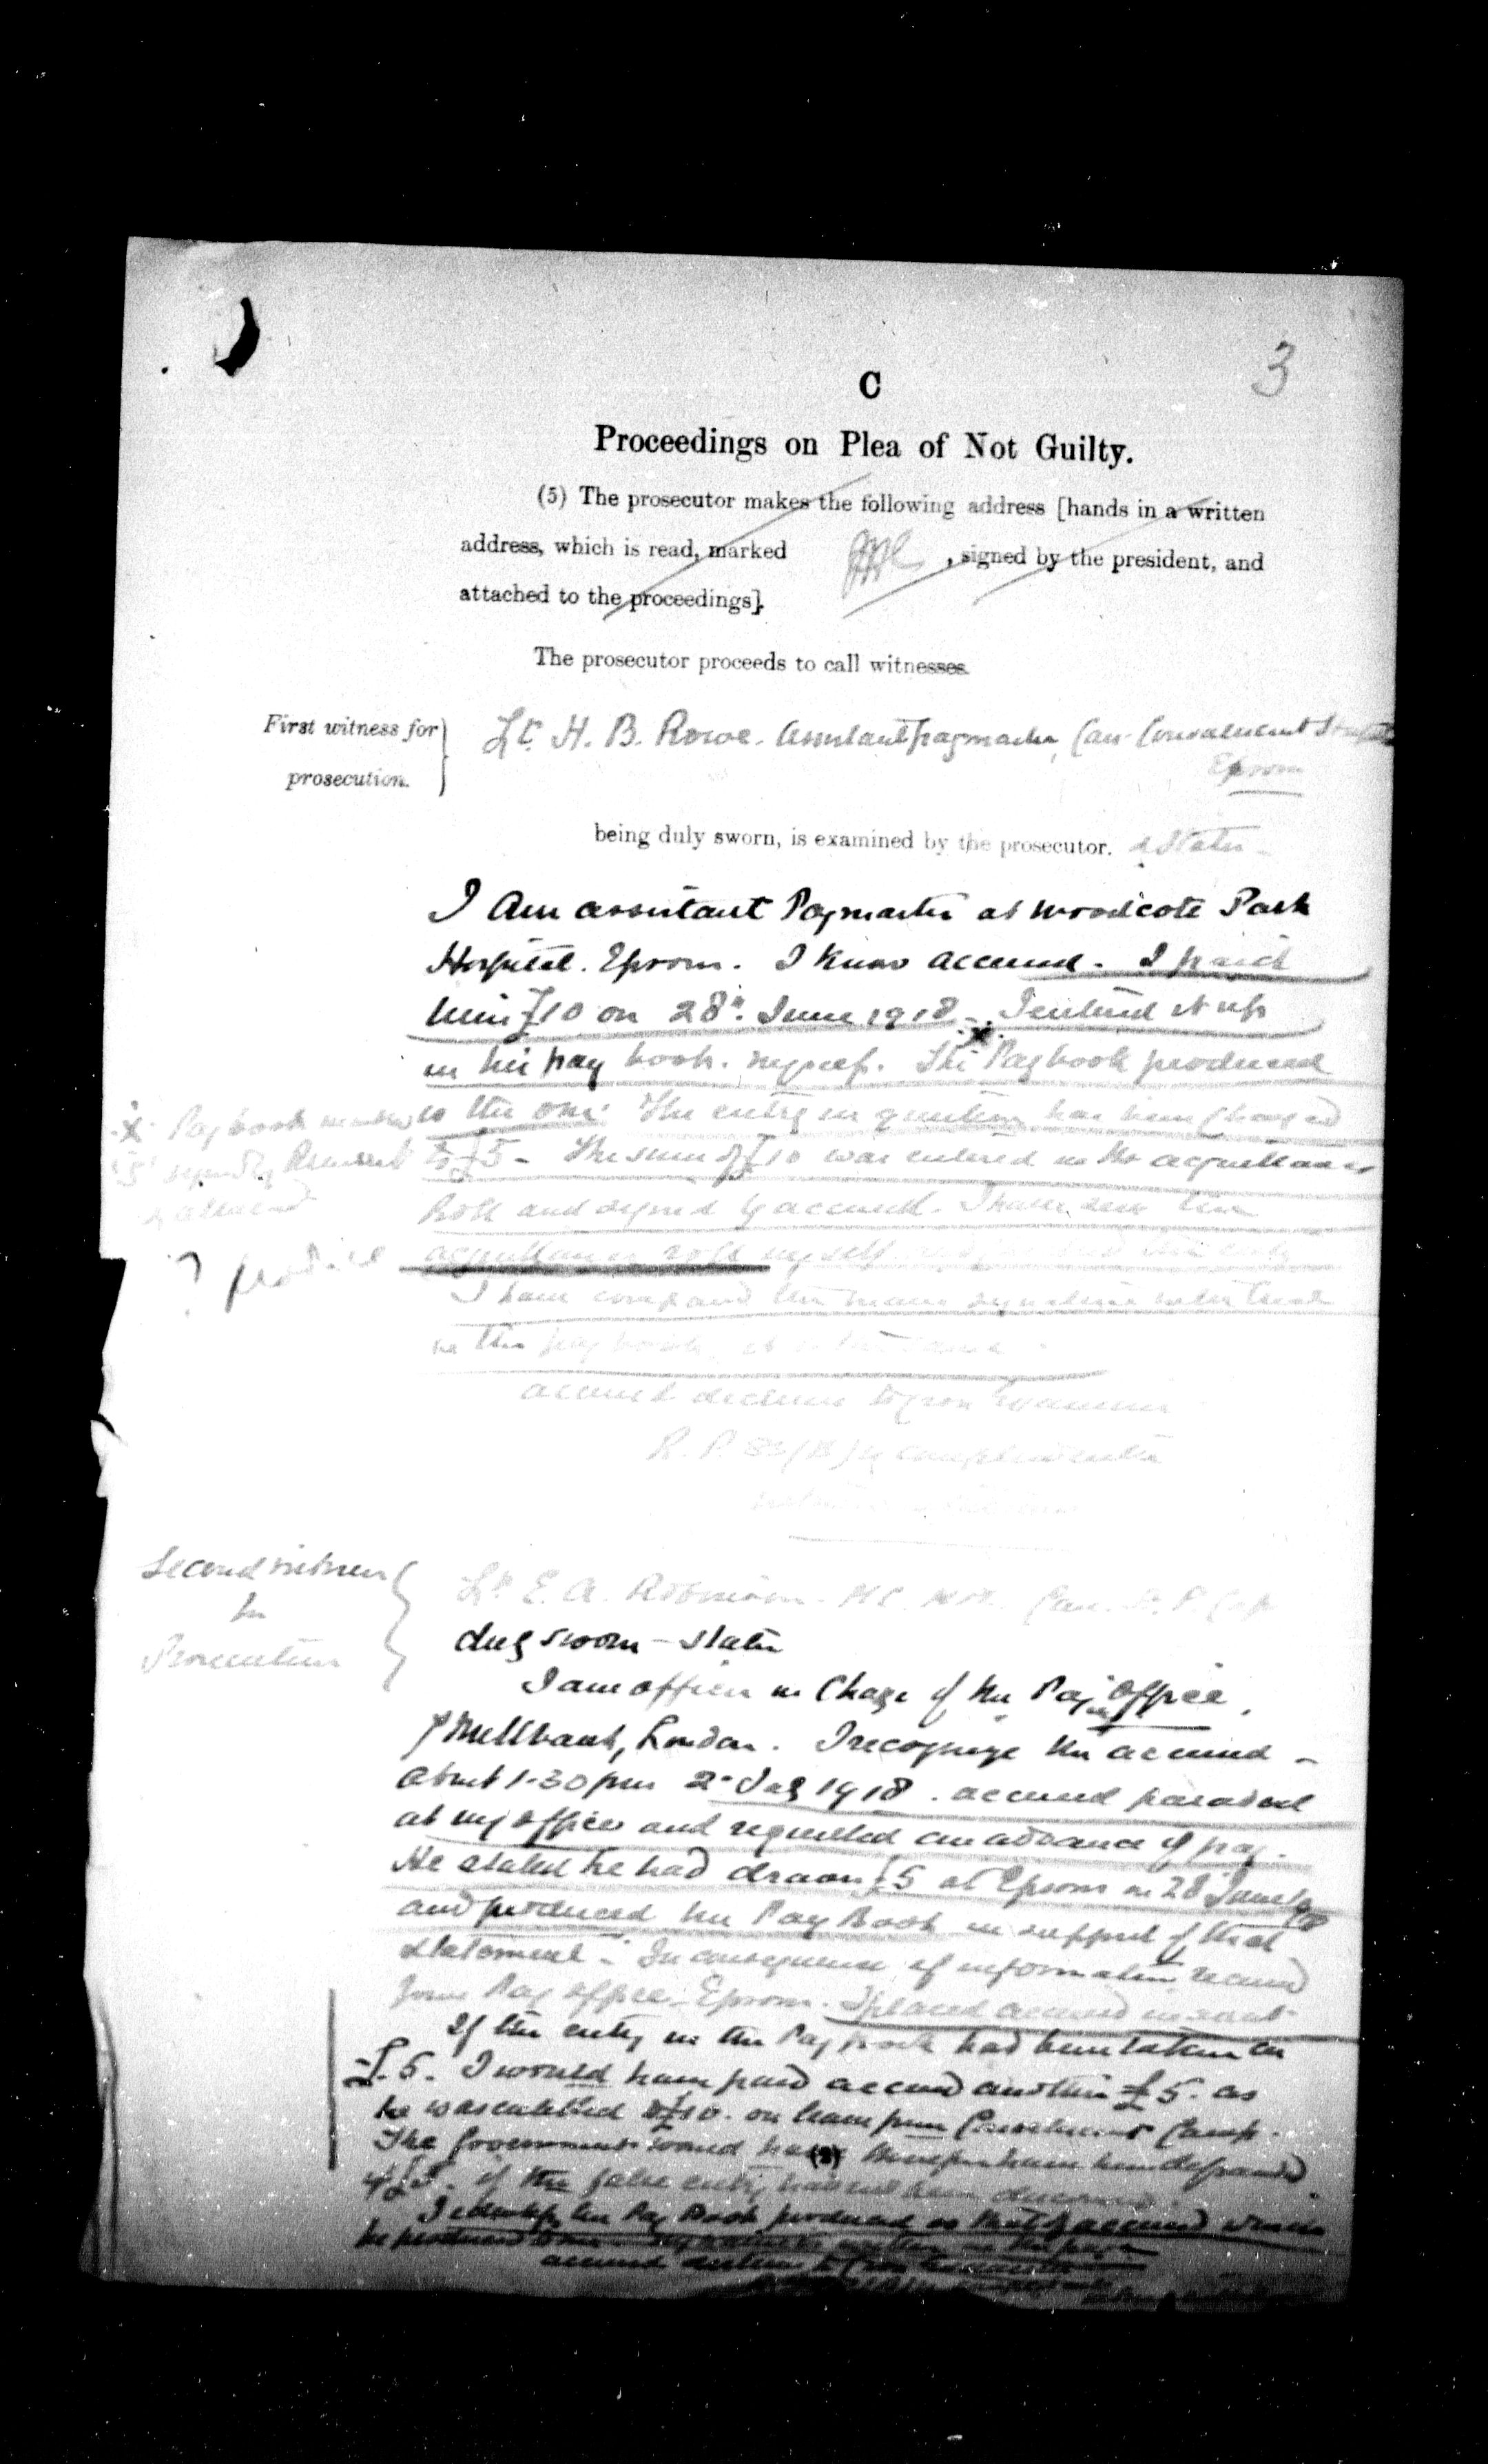 3
C
Proceedings on Plea of Not Guilty.
(5) The prosecutor makes the following address [hands in a written
address, which is read, marked , signed by the president, and
attached to the proceedings].
The prosecutor proceeds to call witnesses.
First witness for
prosecution.
Lt. H. B. Rowe. Assistant Paymaster, Can. Convalescent Hospital
Epsom
being duly sworn, is examined by the prosecutor. & states -
I am assistant Paymaster at Woodcote Park
Hospital. Epsom. I know accused. I paid
him £10 on 28th June 1918. I entered it up
in his pay book. myself. The Pay book produced
is the one. The entry in question has been changed
to £5 - The sum of £10 was entered in the acquittance
Roll and signed by accused. I have seen the
acquittance roll myself
I have compared the name signature with that
in the pay book
accused declines to cross examine
R. P. 83 (B) is complied with
x Pay book marked
signed by President
& attached
? produce
Second witness
for
Prosecution
Lt. E. A. Robinson. M.C.
duly sworn - states
I am officer in charge of the Pay Office,
7 Millbank, London. I recognize the accused -
about 1.30 pm 2nd July 1918. accused paraded
at my office and requested an advance of pay.
He stated he had drawn £5 at Epsom on 28 June
and produced his Pay Book in support of that
statement - In consequence of information received
from Pay Office - Epsom. I placed accused in
If the entry in the Pay book had been taken as
£5. I would have paid accused another £5. as
he was entitled to £10. on leave from Convalescent Camp.
The Government would have therefore have been defrauded
of £5. if the false entry had not been discovered.
I identify the Pay Book produced as that of accused which
he produced to me
accused declines to cross examine
(3)